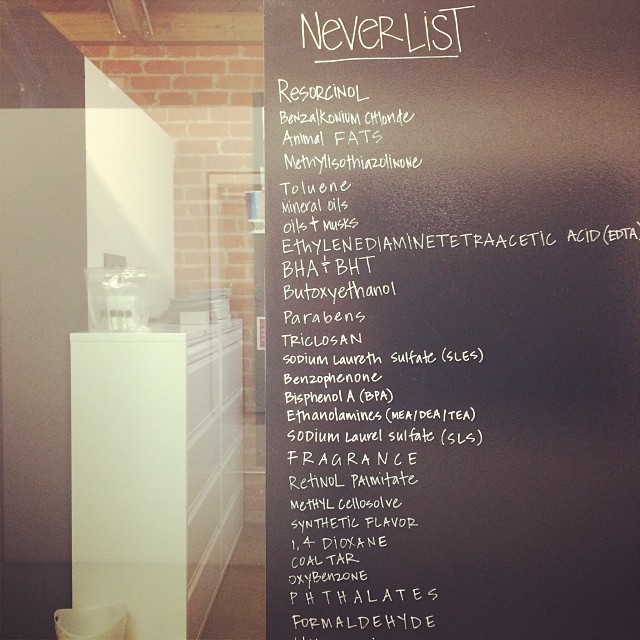 NEVER LIST
RESORCINOL
Benzalkonium Chloride
Animal FATS
Methylisothiazolinone
Toluene
Mineral oils
oils + Musks
EthYLENEDIAMINETETRAACETIC ACID (EDTA)
BHA + BHT
Butoxyethanol
Parabens
TRICLOSAN
SODIUM Laureth Sulfate (SLES)
Benzophenone
Bisphenol A (BPA)
Ethanolamines (MEA/DEA/TEA)
SODIUM Laurel Sulfate (SLS)
FRAGRANCE
RetiNOL PALMITATE
METHYL Cellosolve
SYNTHETIC FLAVOR
1,4 DIOXANE
COAL TAR
OXYBENZONE
PHTHALATES
FORMALDEHYDE